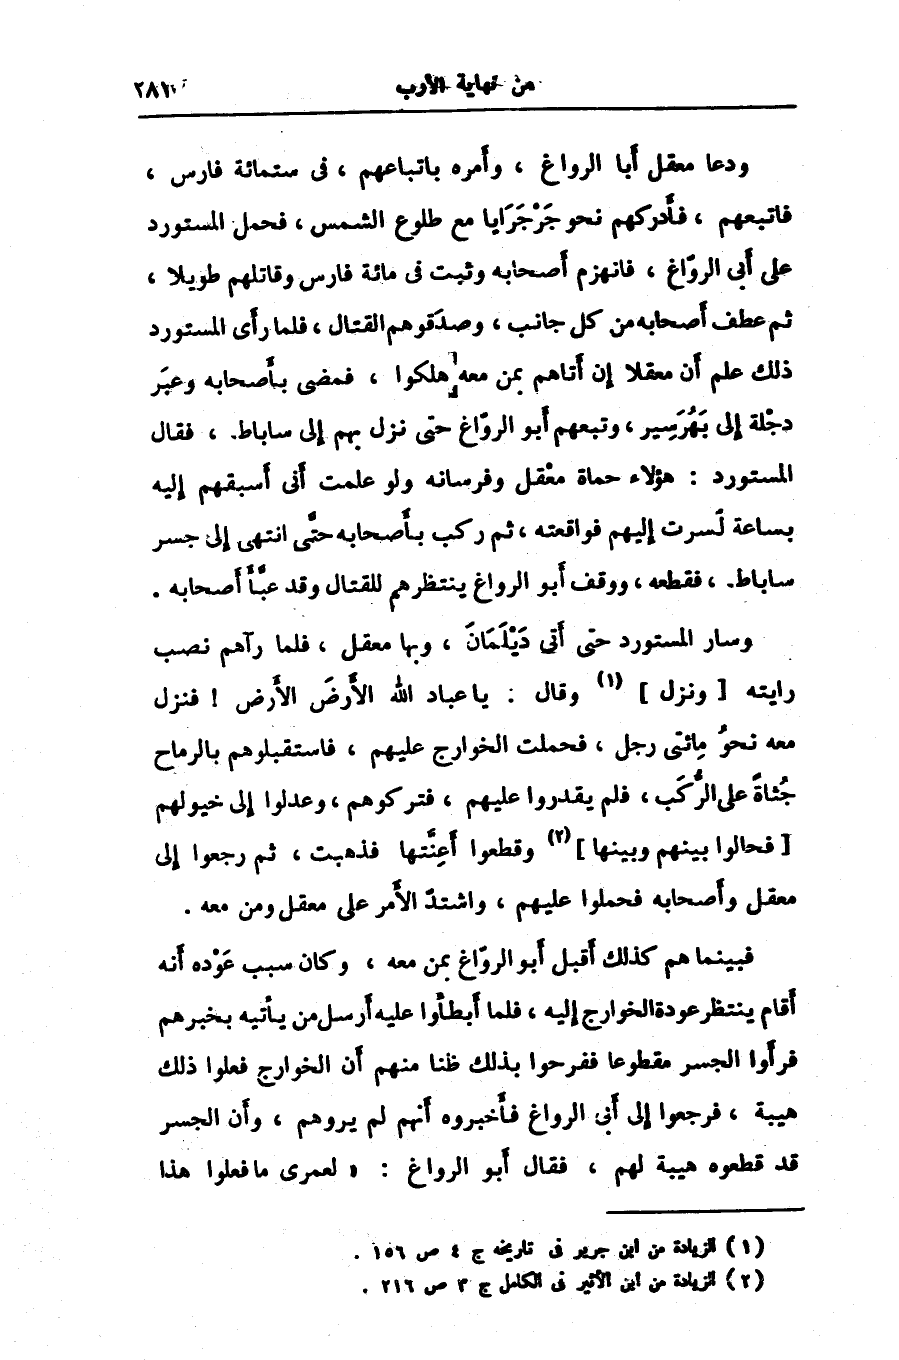 من نهاية الأرب ٢٨١
ودعا معقل أبا الرواغ ، وأمره باتباعهم ، فى ستمائة فارس ،
فاتبعهم ، فأدركهم نحو جَرْجَرَايا مع طلوع الشمس ، فحمل المستورد
على أبى الروّاغ ، فانهزم أصحابه وثبت فى مائة فارس وقاتلهم طويلا ،
ثم عطف أصحابه من كل جانب ، وصدَقوهم القتال ، فلما رأى المستورد
ذلك علم أن معقلا إن أتاهم بمن معه هلكوا ، فمضى بأصحابه وعبَر
دجْلة إلى بَهُرَسِير ، وتبعهم أبو الروّاغ حتى نزل بهم إلى ساباط ، فقال
المستورد : هؤلاء حماة معْقل وفرسانه ولو علمت أنى أسبقهم إليه
بساعة لَسرت إليهم فواقعته ، ثم ركب بأصحابه حتَّى انتهى إلى جسر
ساباط ، فقطعه ، ووقف أبو الرواغ ينتظرهم للقتال وقد عبَّأ أصحابه .
وسار المستورد حتى أتى دَيْلَمَانَ ، وبها معقل ، فلما رآهم نصب
رايته [ ونزل ] (١) وقال : يا عباد الله الأَرضَ الأَرض ! فنزل
معه نحوُ مِائتى رجل ، فحملت الخوارج عليهم ، فاستقبلوهم بالرماح
جُثاةً على الرُّكَب ، فلم يقدروا عليهم ، فتركوهم ، وعدلوا إلى خيولهم
[ فحالوا بينهم وبينها ] (٢) وقطعوا أَعِنَّتها فذهبت ، ثم رجعوا إلى
معقل وأصحابه فحملوا عليهم ، واشتدّ الأَمر على معقل ومن معه .
فبينما هم كذلك أقبل أبو الروّاغ بمن معه ، وكان سبب عَوْده أنه
أقام ينتظر عودة الخوارج إليه ، فلما أبطأوا عليه أرسل من يأتيه بخبرهم
فرأوا الجسر مقطوعا ففرحوا بذلك ظنا منهم أن الخوارج فعلوا ذلك
هيبة ، فرجعوا إلى أبى الرواغ فأخبروه أنهم لم يروهم ، وأن الجسر
قد قطعوه هيبة لهم ، فقال أبو الرواغ : « لعمرى ما فعلوا هذا
(١) الزيادة من ابن جرير فى تاريخه ج ٤ ص ١٥٦ .
(٢) الزيادة من ابن الأثير فى الكامل ج ٣ ص ٢١٦ .